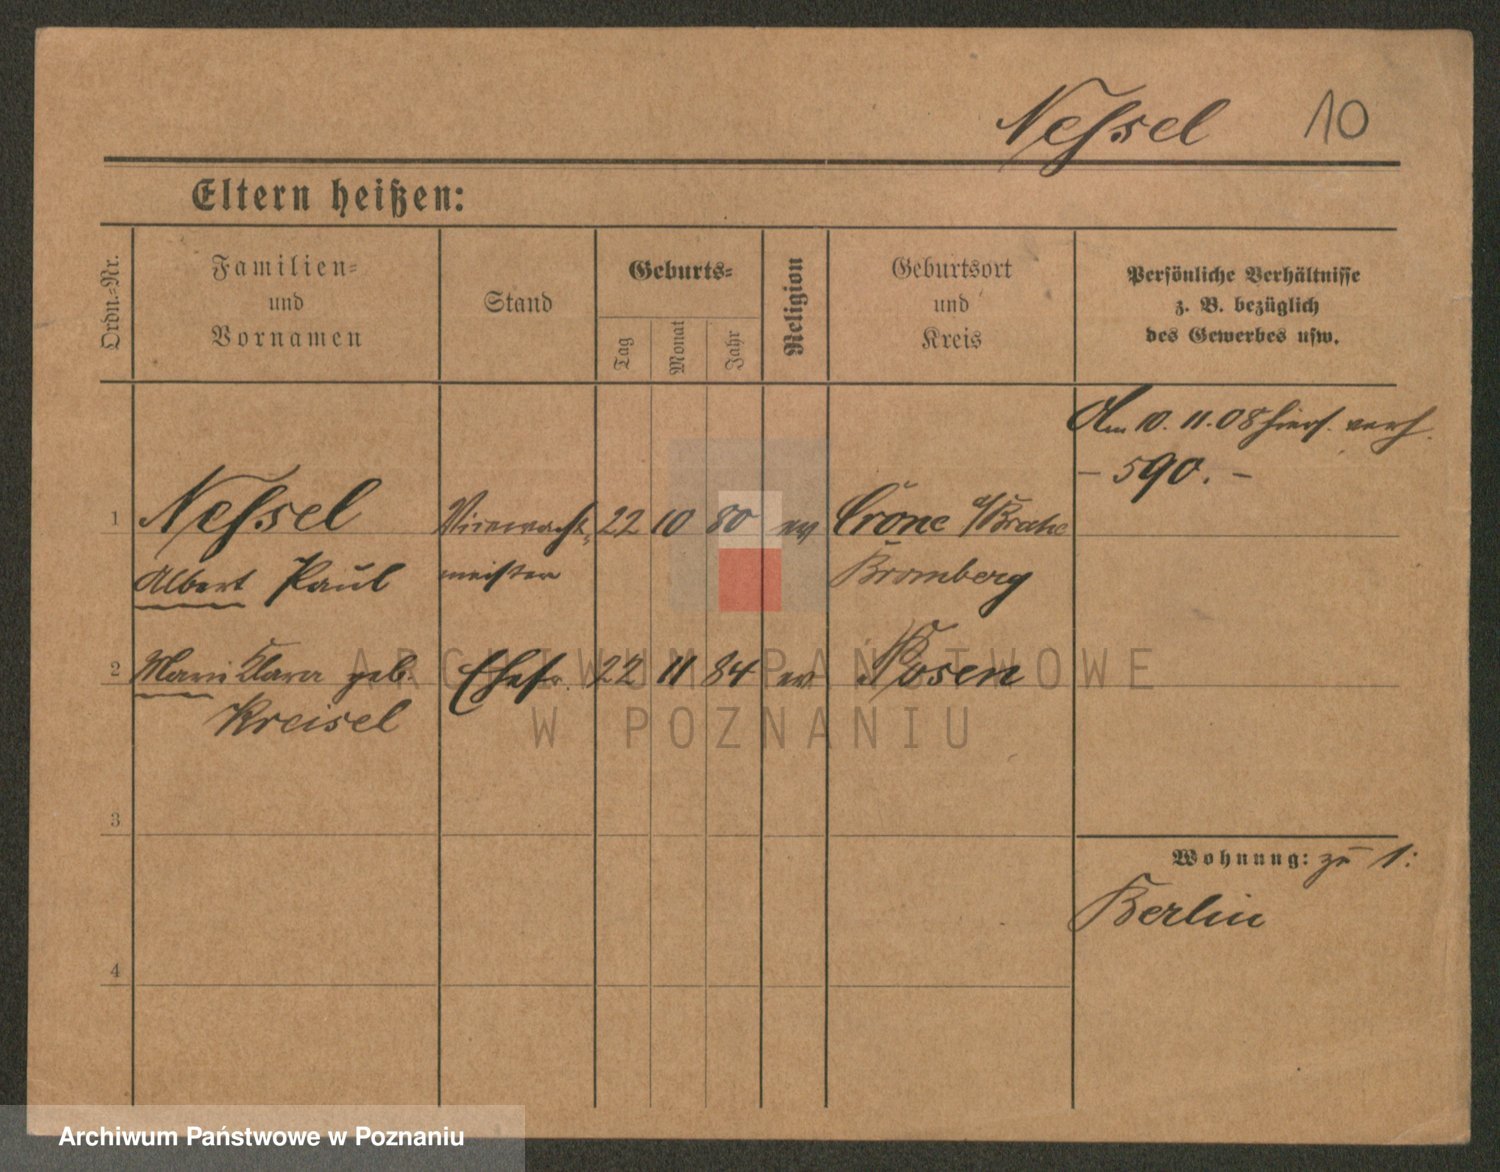 Neſsel 10
Eltern heißen:
Ordn.-Nr.
Familien-
und
Vornamen
Stand
Geburts-
Tag
Monat
Jahr
Religion
Geburtsort
und
Kreis
Persönliche Verhältnisse
z. B. bezüglich
des Gewerbes usw.
Am 10. 11. 08 hiers. verh.
– 590. –
1 Neſsel 22 10 80 ev Crone a/Brahe
Albert Paul meister Bromberg
2 Marie Klara geb. Ehefr. 22 11 84 ev Posen
Kreisel
3
Wohnung: zu 1:
Berlin
4
ARCHIWUM PAŃSTWOWE
W POZNANIU
Archiwum Państwowe w Poznaniu